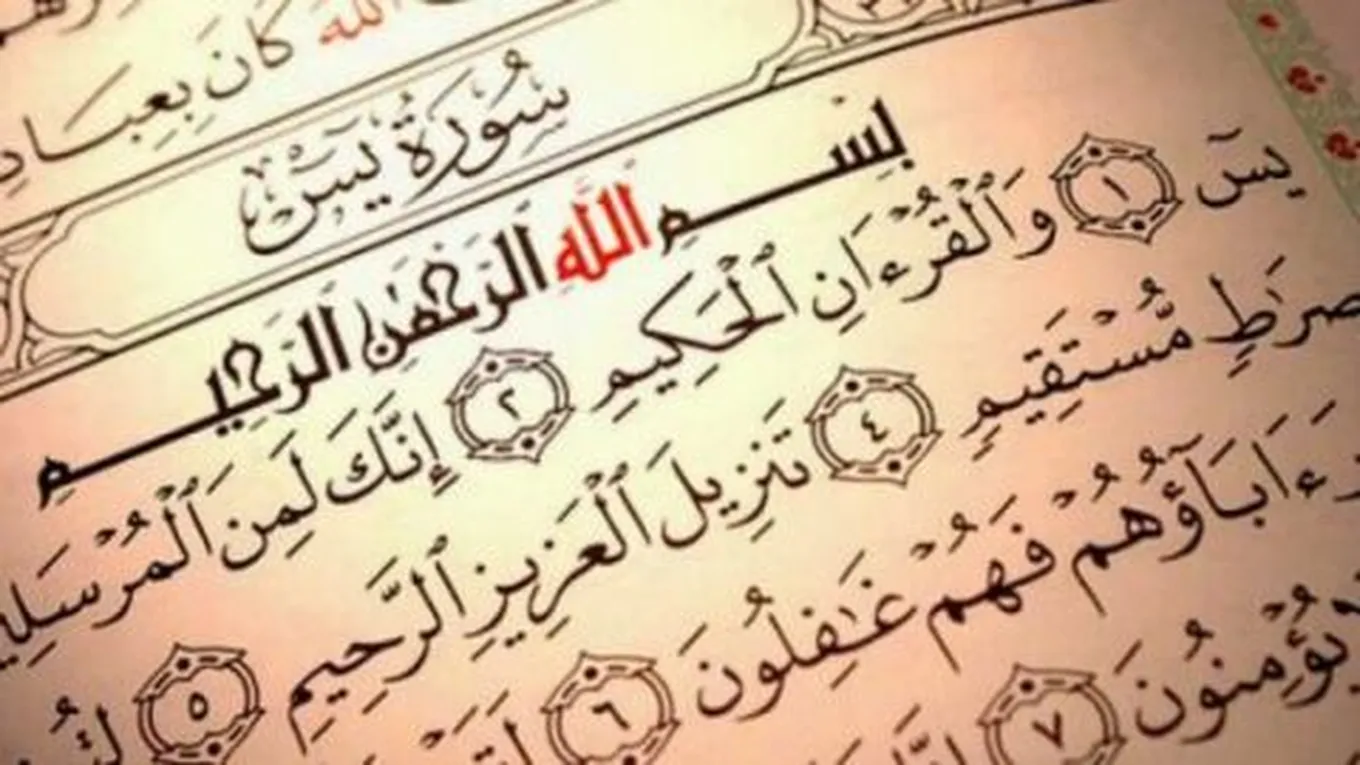 الله كَانَ بِعِبَادِ
سُورَةُ يسٓ
بِسْمِ اللَّهِ الرَّحْمَٰنِ الرَّحِيمِ
يسٓ ١ وَٱلْقُرْءَانِ ٱلْحَكِيمِ ٢ إِنَّكَ لَمِنَ ٱلْمُرْسَلِي
صِرَٰطٍ مُّسْتَقِيمٍ ٤ تَنزِيلَ ٱلْعَزِيزِ ٱلرَّحِيمِ ٥
ءَابَآؤُهُمْ فَهُمْ غَٰفِلُونَ ٦
يُؤْمِنُونَ ٧ إِنَّا